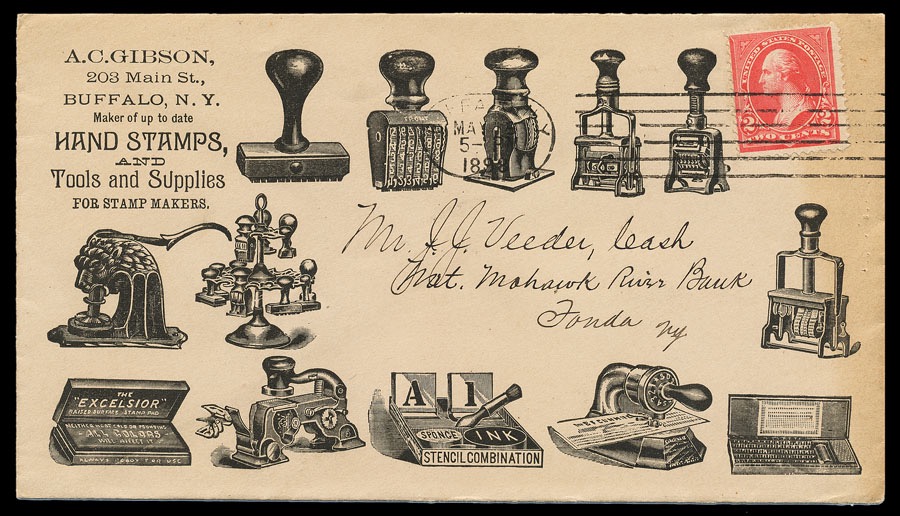 A.C. GIBSON,
203 Main St.,
BUFFALO, N. Y.
Maker of up to date
HAND STAMPS,
AND
Tools and Supplies
FOR STAMP MAKERS.
FRONT
MAY
5-
UNITED STATES POSTAGE
2 2
TWO CENTS
Mr. J. J. Veeder, Cash
Nat. Mohawk River Bank
Fonda NY
THE
"EXCELSIOR"
RAISED SURFACE STAMP PAD
NEITHER HEAT COLD OR
ALL COLORS
WILL
ALWAYS READY FOR USE
A 1
SPONGE INK
STENCIL COMBINATION